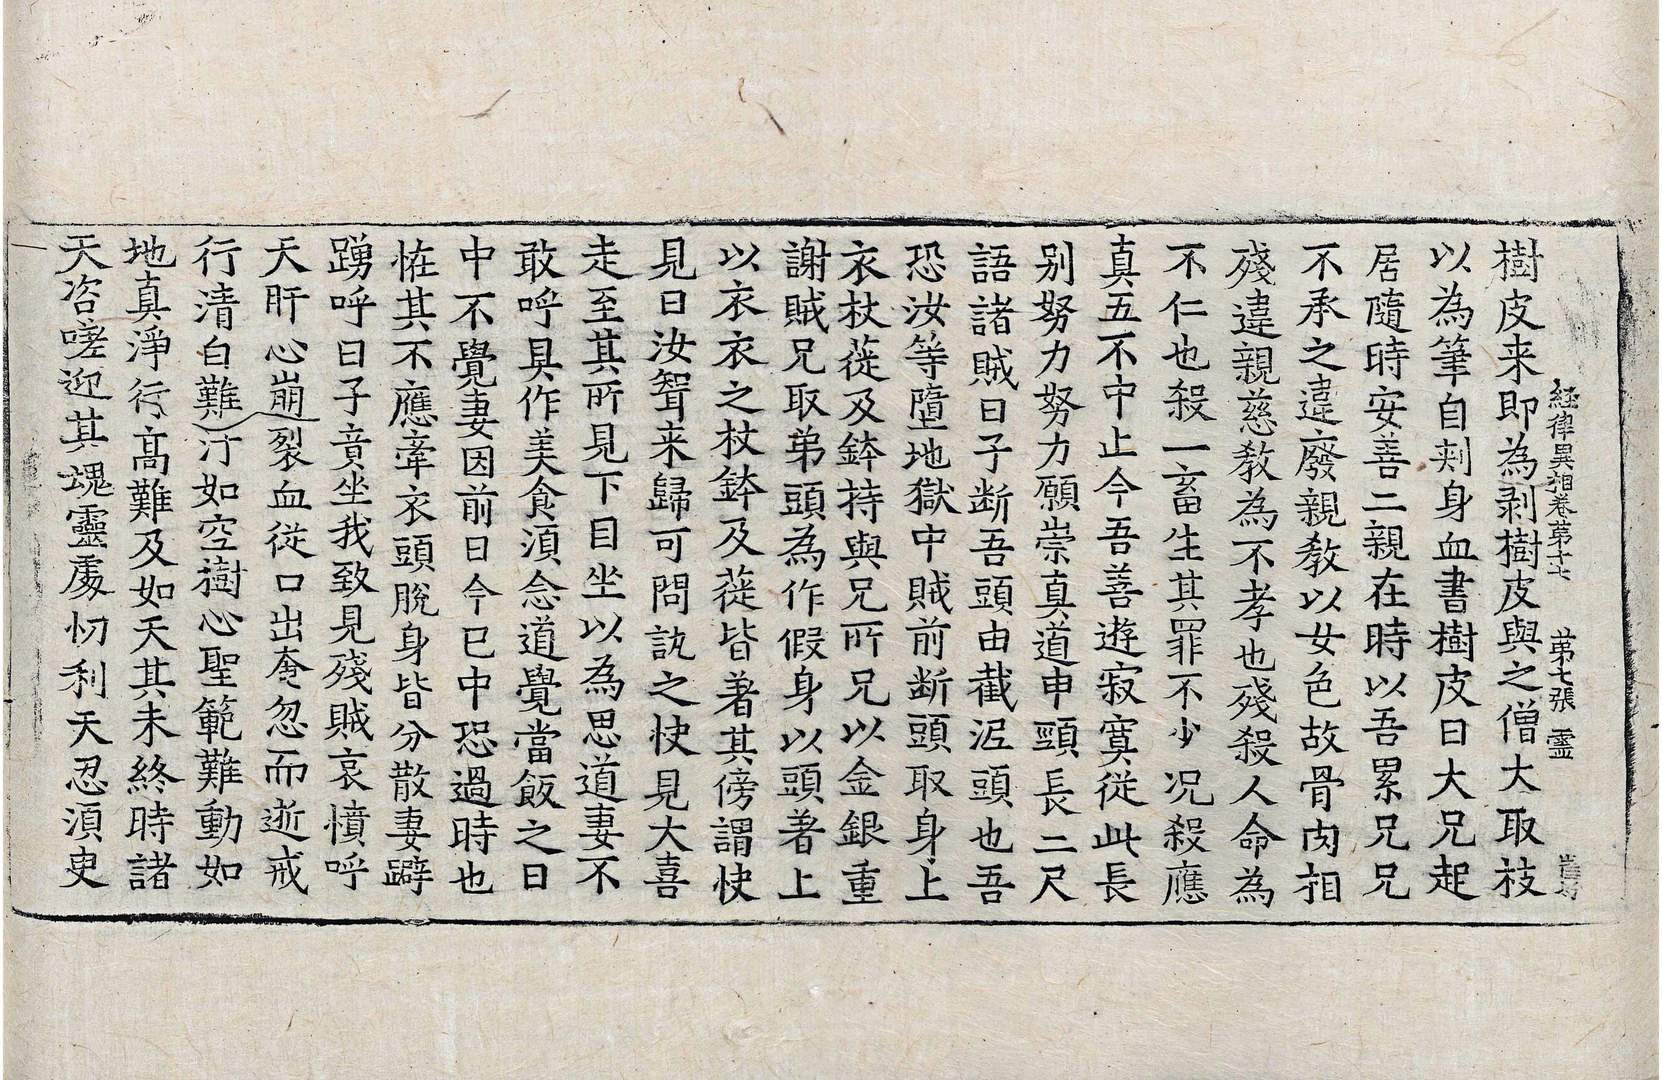 経律異相卷第十七 第七張 靈
樹皮来即為剥樹皮與之僧大取枝
以為筆自刺身血書樹皮曰大兄起
居隨時安善二親在時以吾累兄兄
不承之違廢親教以女色故骨肉相
殘違親慈教為不孝也殘殺人命為
不仁也殺一畜生其罪不少况殺應
真五不中止今吾善遊寂寞従此長
别努力努力願崇真道申頸長二尺
語諸賊曰子断吾頭由截泥頭也吾
恐汝等墮地獄中賊前断頭取身上
衣杖蓰及鉢持與兄所兄以金銀重
謝賊兄取弟頭為作假身以頭著上
以衣衣衣之杖鉢及蓰皆著其傍謂快
見曰汝聟来歸可問訊之快見大喜
走至其所見下目坐以為思道妻不
敢呼具作美食湏念道覺當飯之日
中不覺妻因前曰今已中恐過時也
恠其不應牽衣頭脫身皆分散妻躃
踴呼曰子竟坐我致見殘賊哀憤呼
天肝心崩裂血従口出奄忽而逝戒
行清白難汙如空樹心聖範難動如
地真淨行高難及如天其未終時諸
天咨嗟迎其魂靈處忉利天忍湏臾